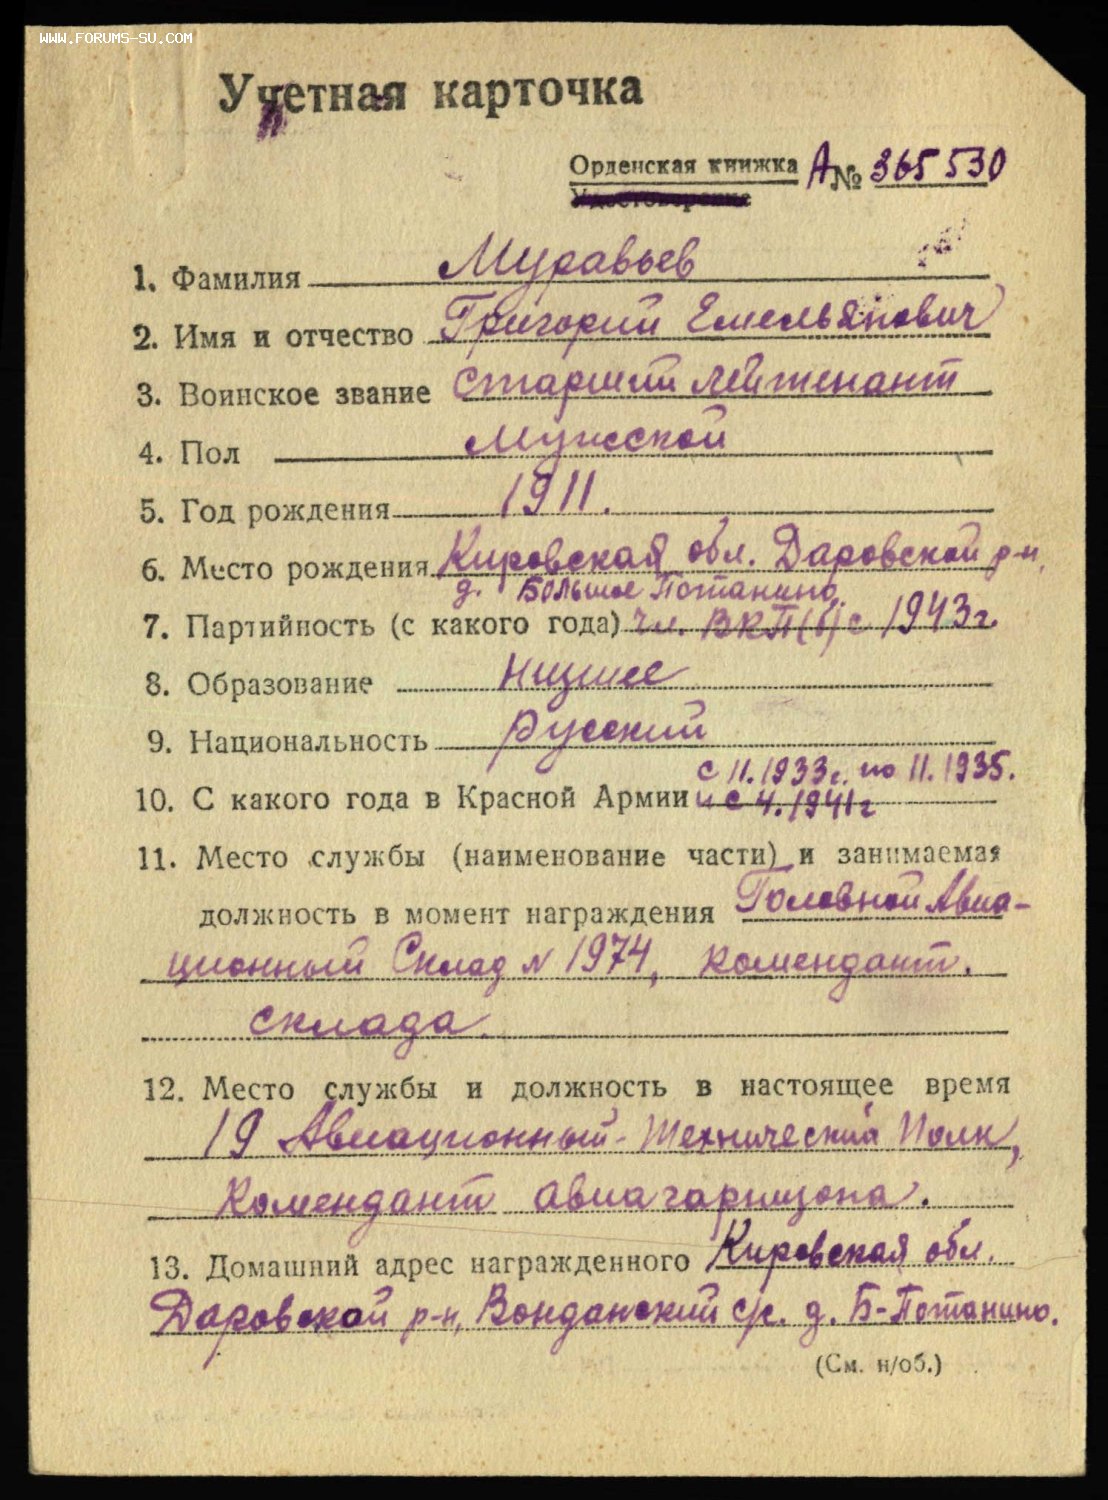 WWW.FORUMS-SU.COM
Учетная карточка
Орденская книжка А № 365530
Удостоверение
1. Фамилия Муравьев
2. Имя и отчество Григорий Емельянович
3. Воинское звание Старший лейтенант
4. Пол Мужской
5. Год рождения 1911.
6. Место рождения Кировская обл. Даровской р-н,
д. Большое Потанино,
7. Партийность (с какого года) чл. ВКП(б) с 1943 г.
8. Образование Низшее
9. Национальность русский
с 11.1933 г. по 11.1935.
10. С какого года в Красной Армии и с 4.1941 г
11. Место службы (наименование части) и занимаемая
должность в момент награждения Головной Авиа-
ционный Склад N 1974, комендант
склада.
12. Место службы и должность в настоящее время
19 Авиационный-Технический Полк,
Комендант авиагарнизона.
13. Домашний адрес награжденного Кировская обл.
Даровской р-н, Вонданский с/с. д. Б-Потанино.
(См. н/об.)